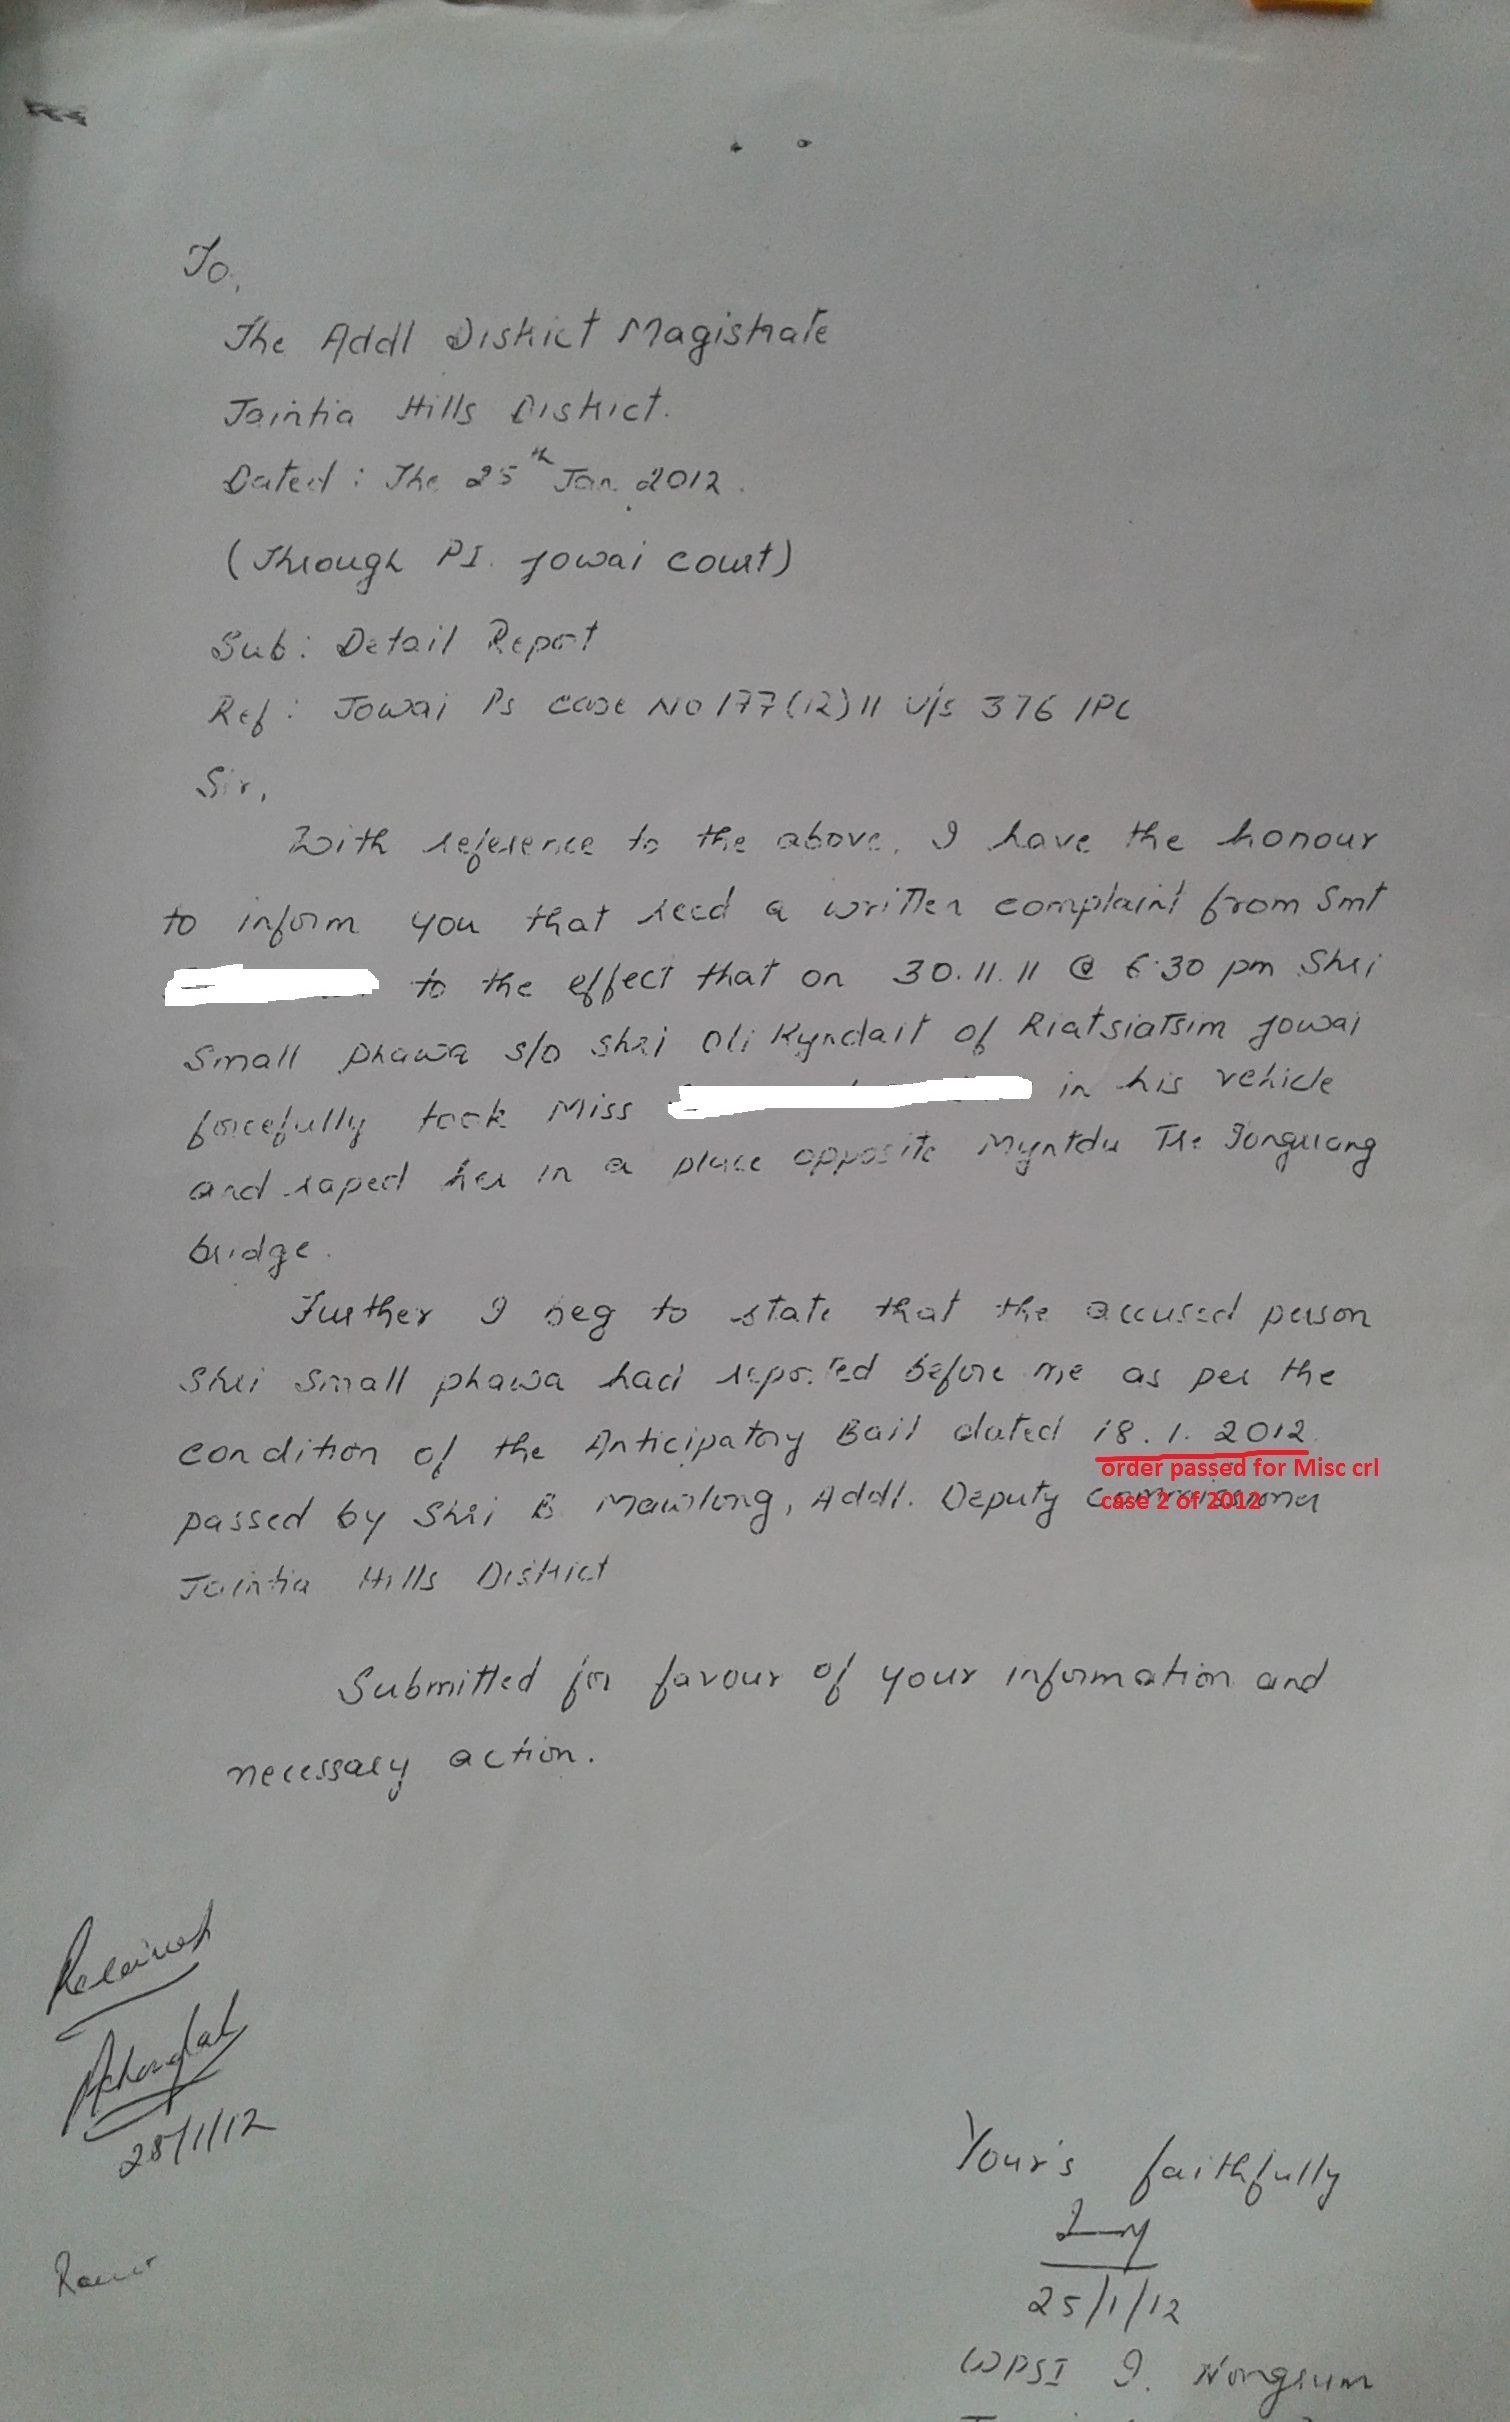 To,
The Addl District Magistrate
Jaintia Hills District.
Dated : The 25th Jan 2012.
(Through PI. Jowai court)
Sub: Detail Report
Ref: Jowai Ps case No 177(12)11 U/s 376 IPC
Sir,
With reference to the above, I have the honour
to inform you that recd a written complaint from Smt
to the effect that on 30.11.11 @ 6.30 pm Shri
Small Phawa s/o Shri Oli Kyndait of Riatsiatsim Jowai
forcefully took Miss in his vehicle
and raped her in a place opposite Myntdu
bridge.
Further I beg to state that the accused person
Shri Small phawa had reported before me as per the
condition of the Anticipatory Bail dated 18.1.2012.
order passed for Misc crl
case 2 of 2012
passed by Shri B Mawlong, Addl. Deputy Commissioner
Jaintia Hills District
Submitted for favour of your information and
necessary action.
Received
28/1/12
Your's faithfully
25/1/12
WPSI I. Nongrum